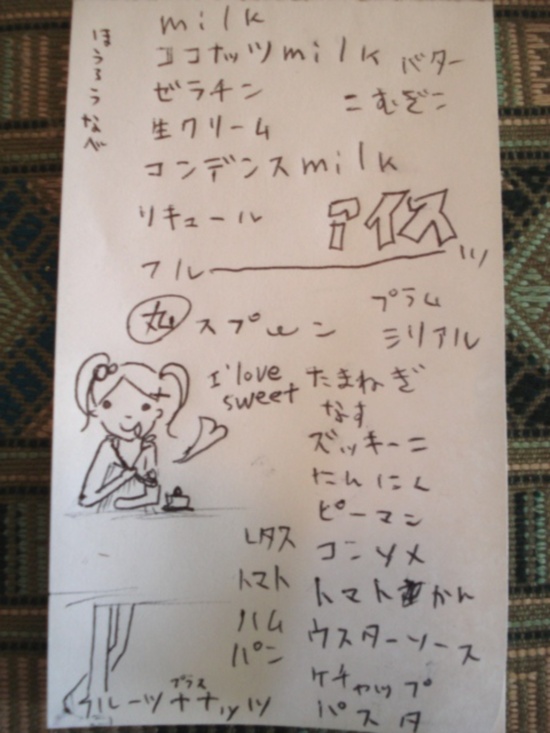 ほうろうなべ
milk
ココナッツmilk
バター
ゼラチン
こむぎこ
生クリーム
コンデンスmilk
リキュール
アイス
フルーーツ
プラム
丸スプーン
シリアル
I'love
sweet
たまねぎ
なす
ズッキーニ
にんにく
ピーマン
レタス
コンソメ
トマト
トマトかん
ハム
ウスターソース
パン
ケチャップ
プラス
フルーツナナッツ
パスタ